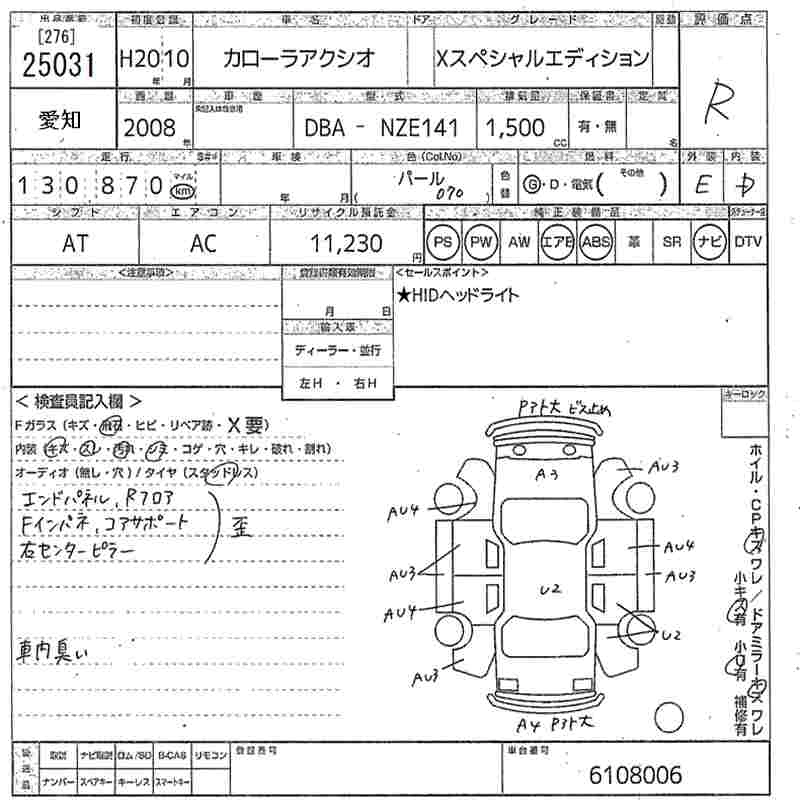 出品番号 初度登録 車名 ドア グレード 評価点
[276]
25031 H20 10 カローラアクシオ Xスペシャルエディション R
年 月
愛知
型式 排気量 保証書 定員
2008 DBA - NZE141 1,500 有・無
年 CC 名
走行 車検 色(Col.No) 燃料 外装 内装
130870 マイル km 年 月 パール 070 色替 G・D・電気( その他 ) E D
シフト エアコン リサイクル預託金 純正装備品
AT AC 11,230 円 PS PW AW エアB ABS 革 SR ナビ DTV
<注意事項> <セールスポイント>
★HIDヘッドライト
月 日
輸入車
ディーラー・並行
左H ・ 右H
<検査員記入欄>
キーロック
Fガラス(キズ・飛石・ヒビ・リペア跡・X要)
内装(キズ・スレ・汚れ・シミ・コゲ・穴・キレ・破れ・割れ)
オーディオ(無し・穴)/タイヤ(スタッドレス)
エンドパネル、Rフロア
Fインパネ、コアサポート 歪
右センターピラー
車内臭い
Pアト大 ビス止め
A3
AU3
AU4
AU4
AU3
AU3
U2
AU4
U2
AU3
A4 Pアト大
ホイル・CPキズワレ/ドアミラーキズワレ
小キズ有 小凹有 補修有
取説 ナビ取説 ロム/SD B-CAS リモコン 登録番号 車台番号
ナンバー スペアキー キーレス スマートキー 6108006